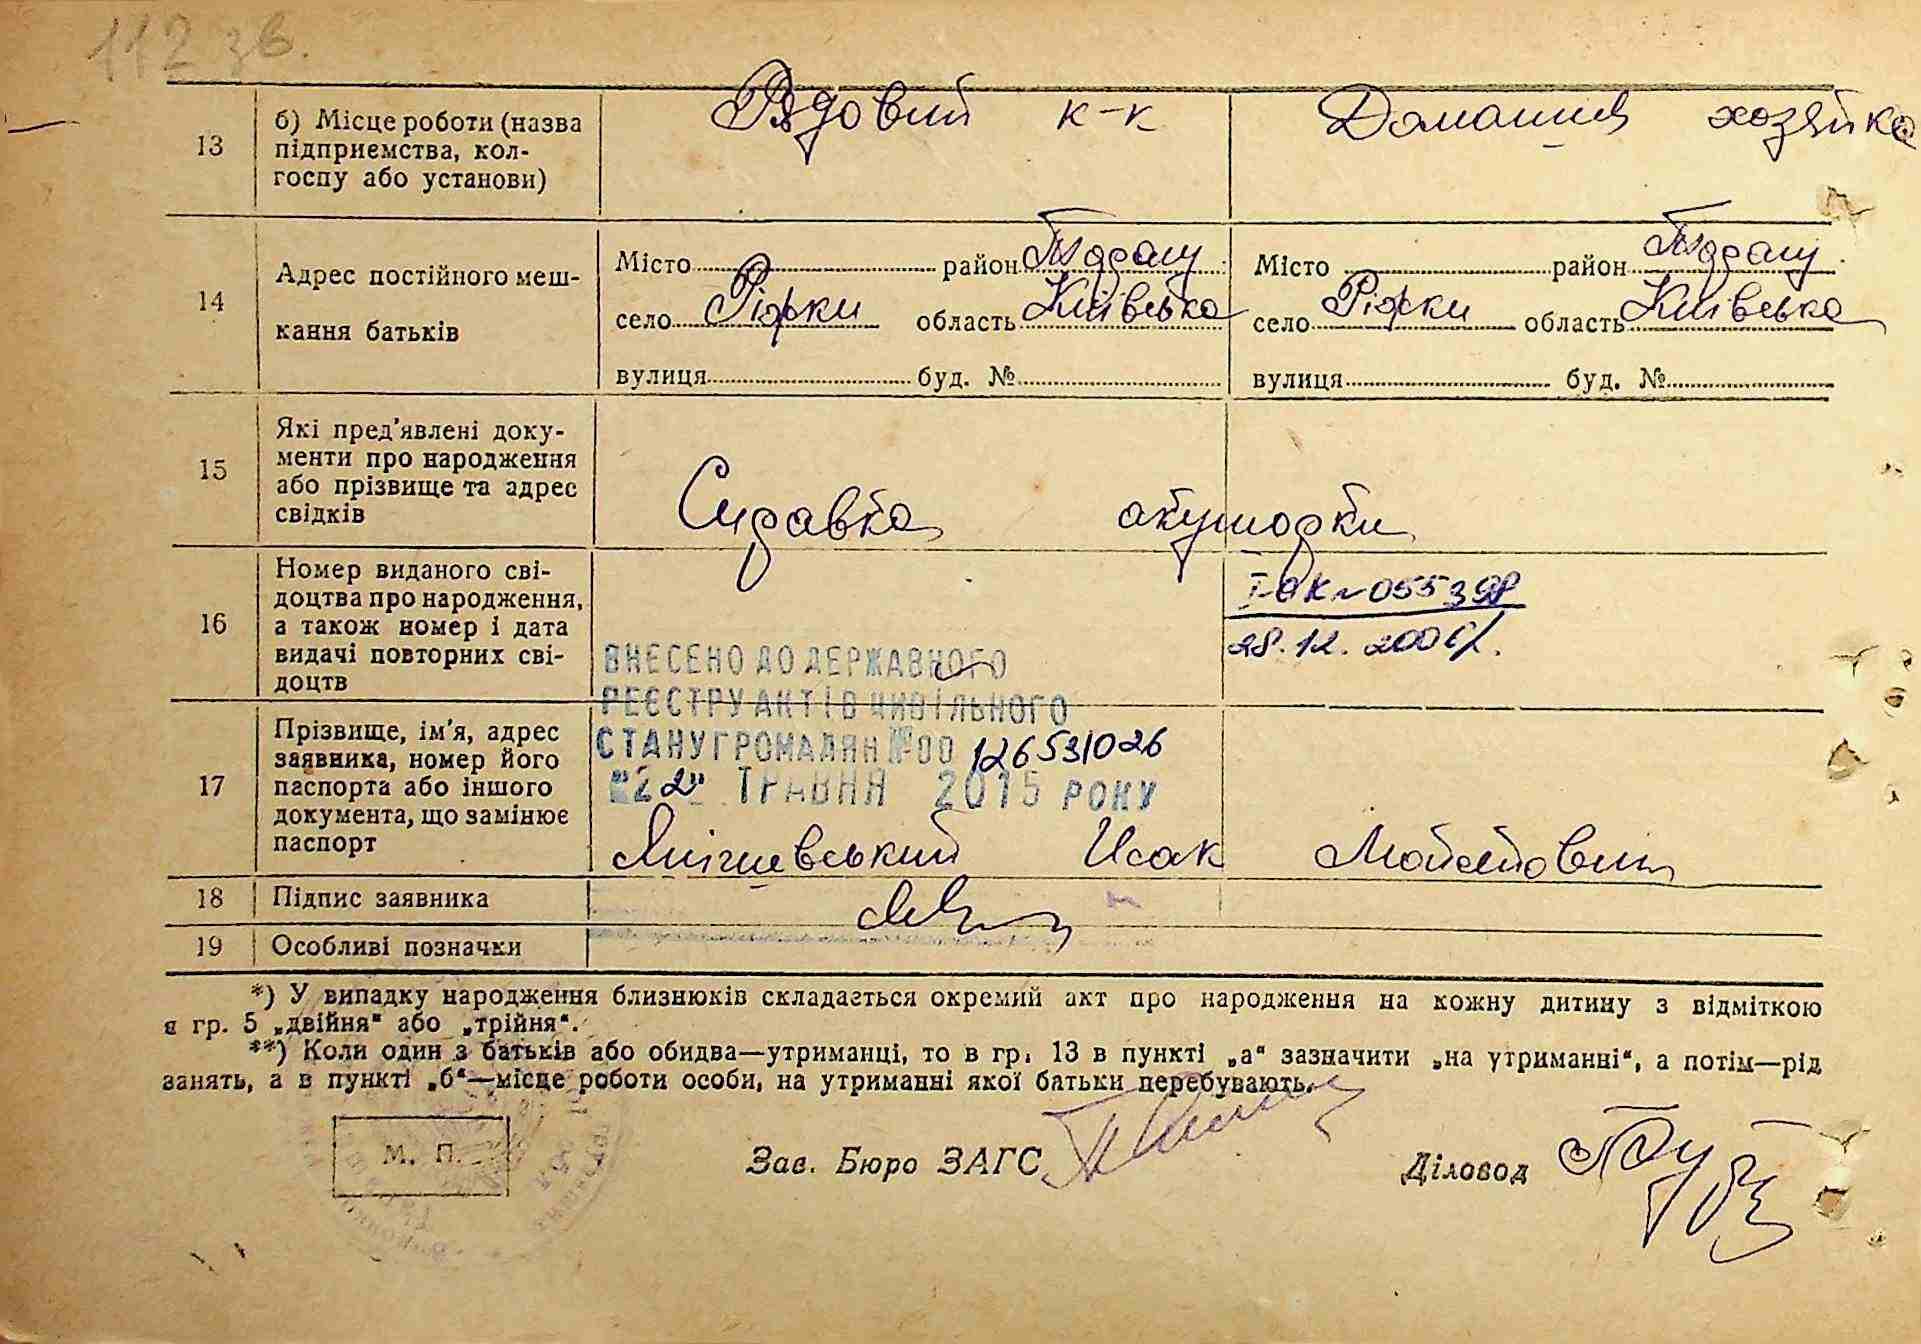 112 зв.
13
б) Місце роботи (назва
підприємства, кол-
госпу або установи)
Рядовий к-к
Домашня хозяйка
14
Адрес постійного меш-
кання батьків
Місто район
село Ріжки область Київська
вулиця буд. №
Місто район
село Ріжки область Київська
вулиця буд. №
15
Які пред'явлені доку-
менти про народження
або прізвище та адрес
свідків
Справка акушорки
16
Номер виданого сві-
доцтва про народження,
а також номер і дата
видачі повторних сві-
доцтв
28.12.2006р.
ВНЕСЕНО ДО ДЕРЖАВНОГО
РЕЄСТРУ АКТІВ ЦИВІЛЬНОГО
СТАНУ ГРОМАДЯН №00 126531026
"22" ТРАВНЯ 2015 РОКУ
17
Прізвище, ім'я, адрес
заявника, номер його
паспорта або іншого
документа, що замінює
паспорт
Исак
18
Підпис заявника
19
Особливі позначки
*) У випадку народження близнюків складається окремий акт про народження на кожну дитину з відміткою
в гр. 5 „двійня“ або „трійня“.
**) Коли один з батьків або обидва—утриманці, то в гр. 13 в пункті „а“ зазначити „на утриманні“, а потім—рід
занять, а в пункті „б“—місце роботи особи, на утриманні якої батьки перебувають.
М. П.
Зав. Бюро ЗАГС
Діловод